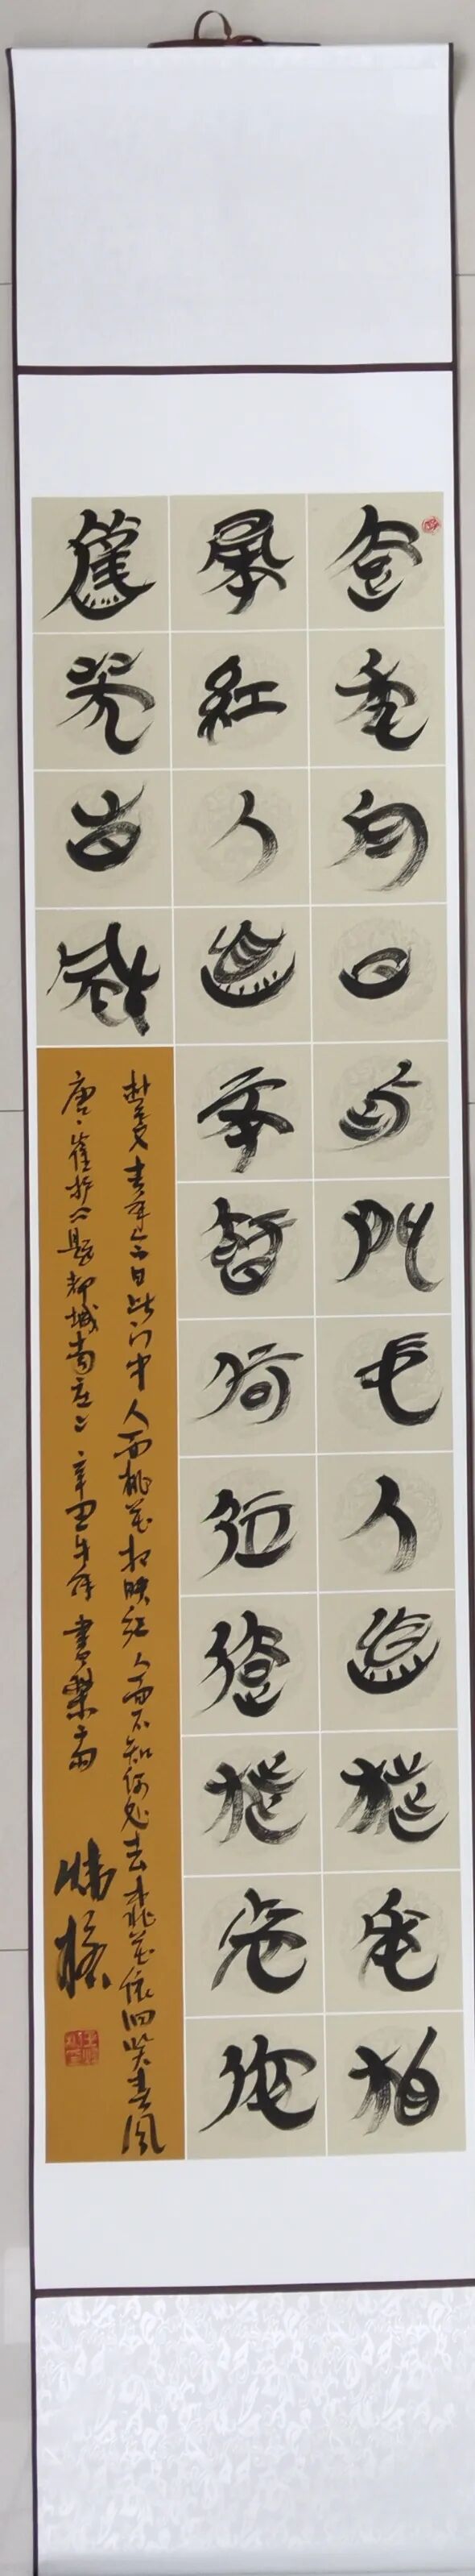 去年今日此門中人面桃花相
映紅人面不知何處去桃花依
舊笑春風
释文 去年今日此门中 人面桃花相映红 人面不知何处去 桃花依旧笑春风
唐 崔护 题都城南庄 辛丑年